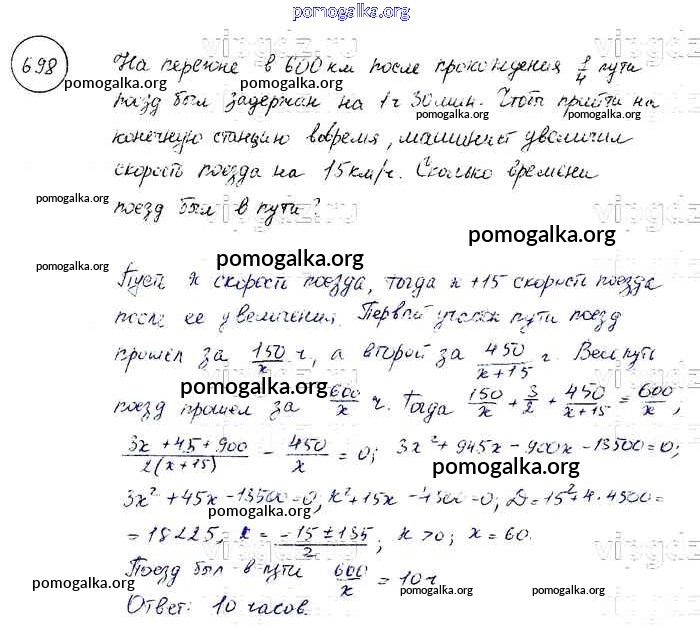 pomogalka.org
698 На перегоне в 600 км после прохождения 1/4 пути
pomogalka.org pomogalka.org
поезд был задержан на 1 ч 30 мин. Чтобы прийти на
конечную станцию вовремя, машинист увеличил
скорость поезда на 15 км/ч. Сколько времени
pomogalka.org pomogalka.org
поезд был в пути?
pomogalka.org
pomogalka.org pomogalka.org
Пусть x скорость поезда, тогда x + 15 скорость поезда
после ее увеличения. Первый участок пути поезд
прошел за 150/x ч, а второй за 450/(x+15) ч. Весь путь
pomogalka.org
поезд прошел за 600/x ч. Тогда 150/x + 3/2 + 450/(x+15) = 600/x;
(3x + 45 + 900)/(2(x+15)) - 450/x = 0; 3x² + 945x - 900x - 13500 = 0;
pomogalka.org
3x² + 45x - 13500 = 0, x² + 15x - 4500 = 0; D = 15² + 4·4500 =
= 18225; x = (-15 ± 135)/2; x > 0; x = 60.
Поезд был в пути 600/x = 10 ч
pomogalka.org pomogalka.org pomogalka.org
Ответ: 10 часов.